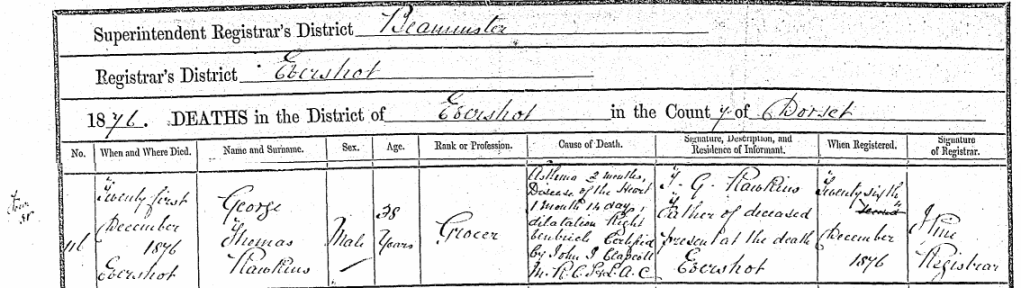 Superintendent Registrar's District Beaminster
Registrar's District Evershot
1876. DEATHS in the District of Evershot in the County of Dorset
No. When and Where Died. Name and Surname. Sex. Age. Rank or Profession. Cause of Death. Signature, Description, and Residence of Informant. When Registered. Signature of Registrar.
116
Twenty first
December
1876
Evershot
George
Thomas
Hawkins
Male
38
Years
Grocer
Asthma 2 months,
Disease of the Heart
1 month 14 days,
dilatation Right
Certified
by John I Clapcott
T. G. Hawkins
Father of deceased
present at the death
Evershot
Twenty sixth
December
1876
J Pine
Registrar